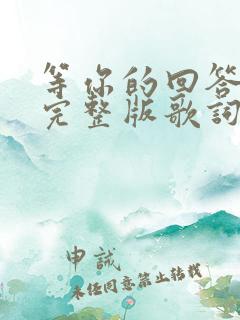 等你的回答
完整版歌词
申誠
未经同意禁止转载